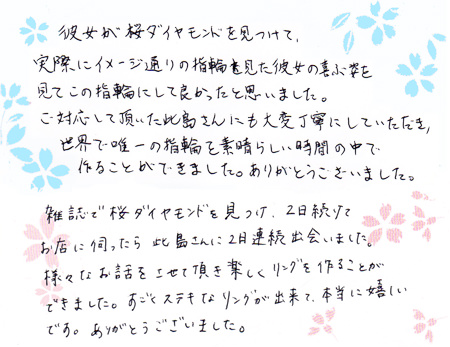 彼女が桜ダイヤモンドを見つけて、
実際にイメージ通りの指輪を見た彼女の喜ぶ姿を
見てこの指輪にして良かったと思いました。
ご対応して頂いた此島さんにも大変丁寧にしていただき、
世界で唯一の指輪を素晴らしい時間の中で
作ることができました。ありがとうございました。
雑誌で桜ダイヤモンドを見つけ、2日続けて
お店に伺ったら此島さんに2日連続出会いました。
様々なお話をさせて頂き楽しくリングを作ることが
できました。すごくステキなリングが出来て、本当に嬉しい
です。ありがとうございました。